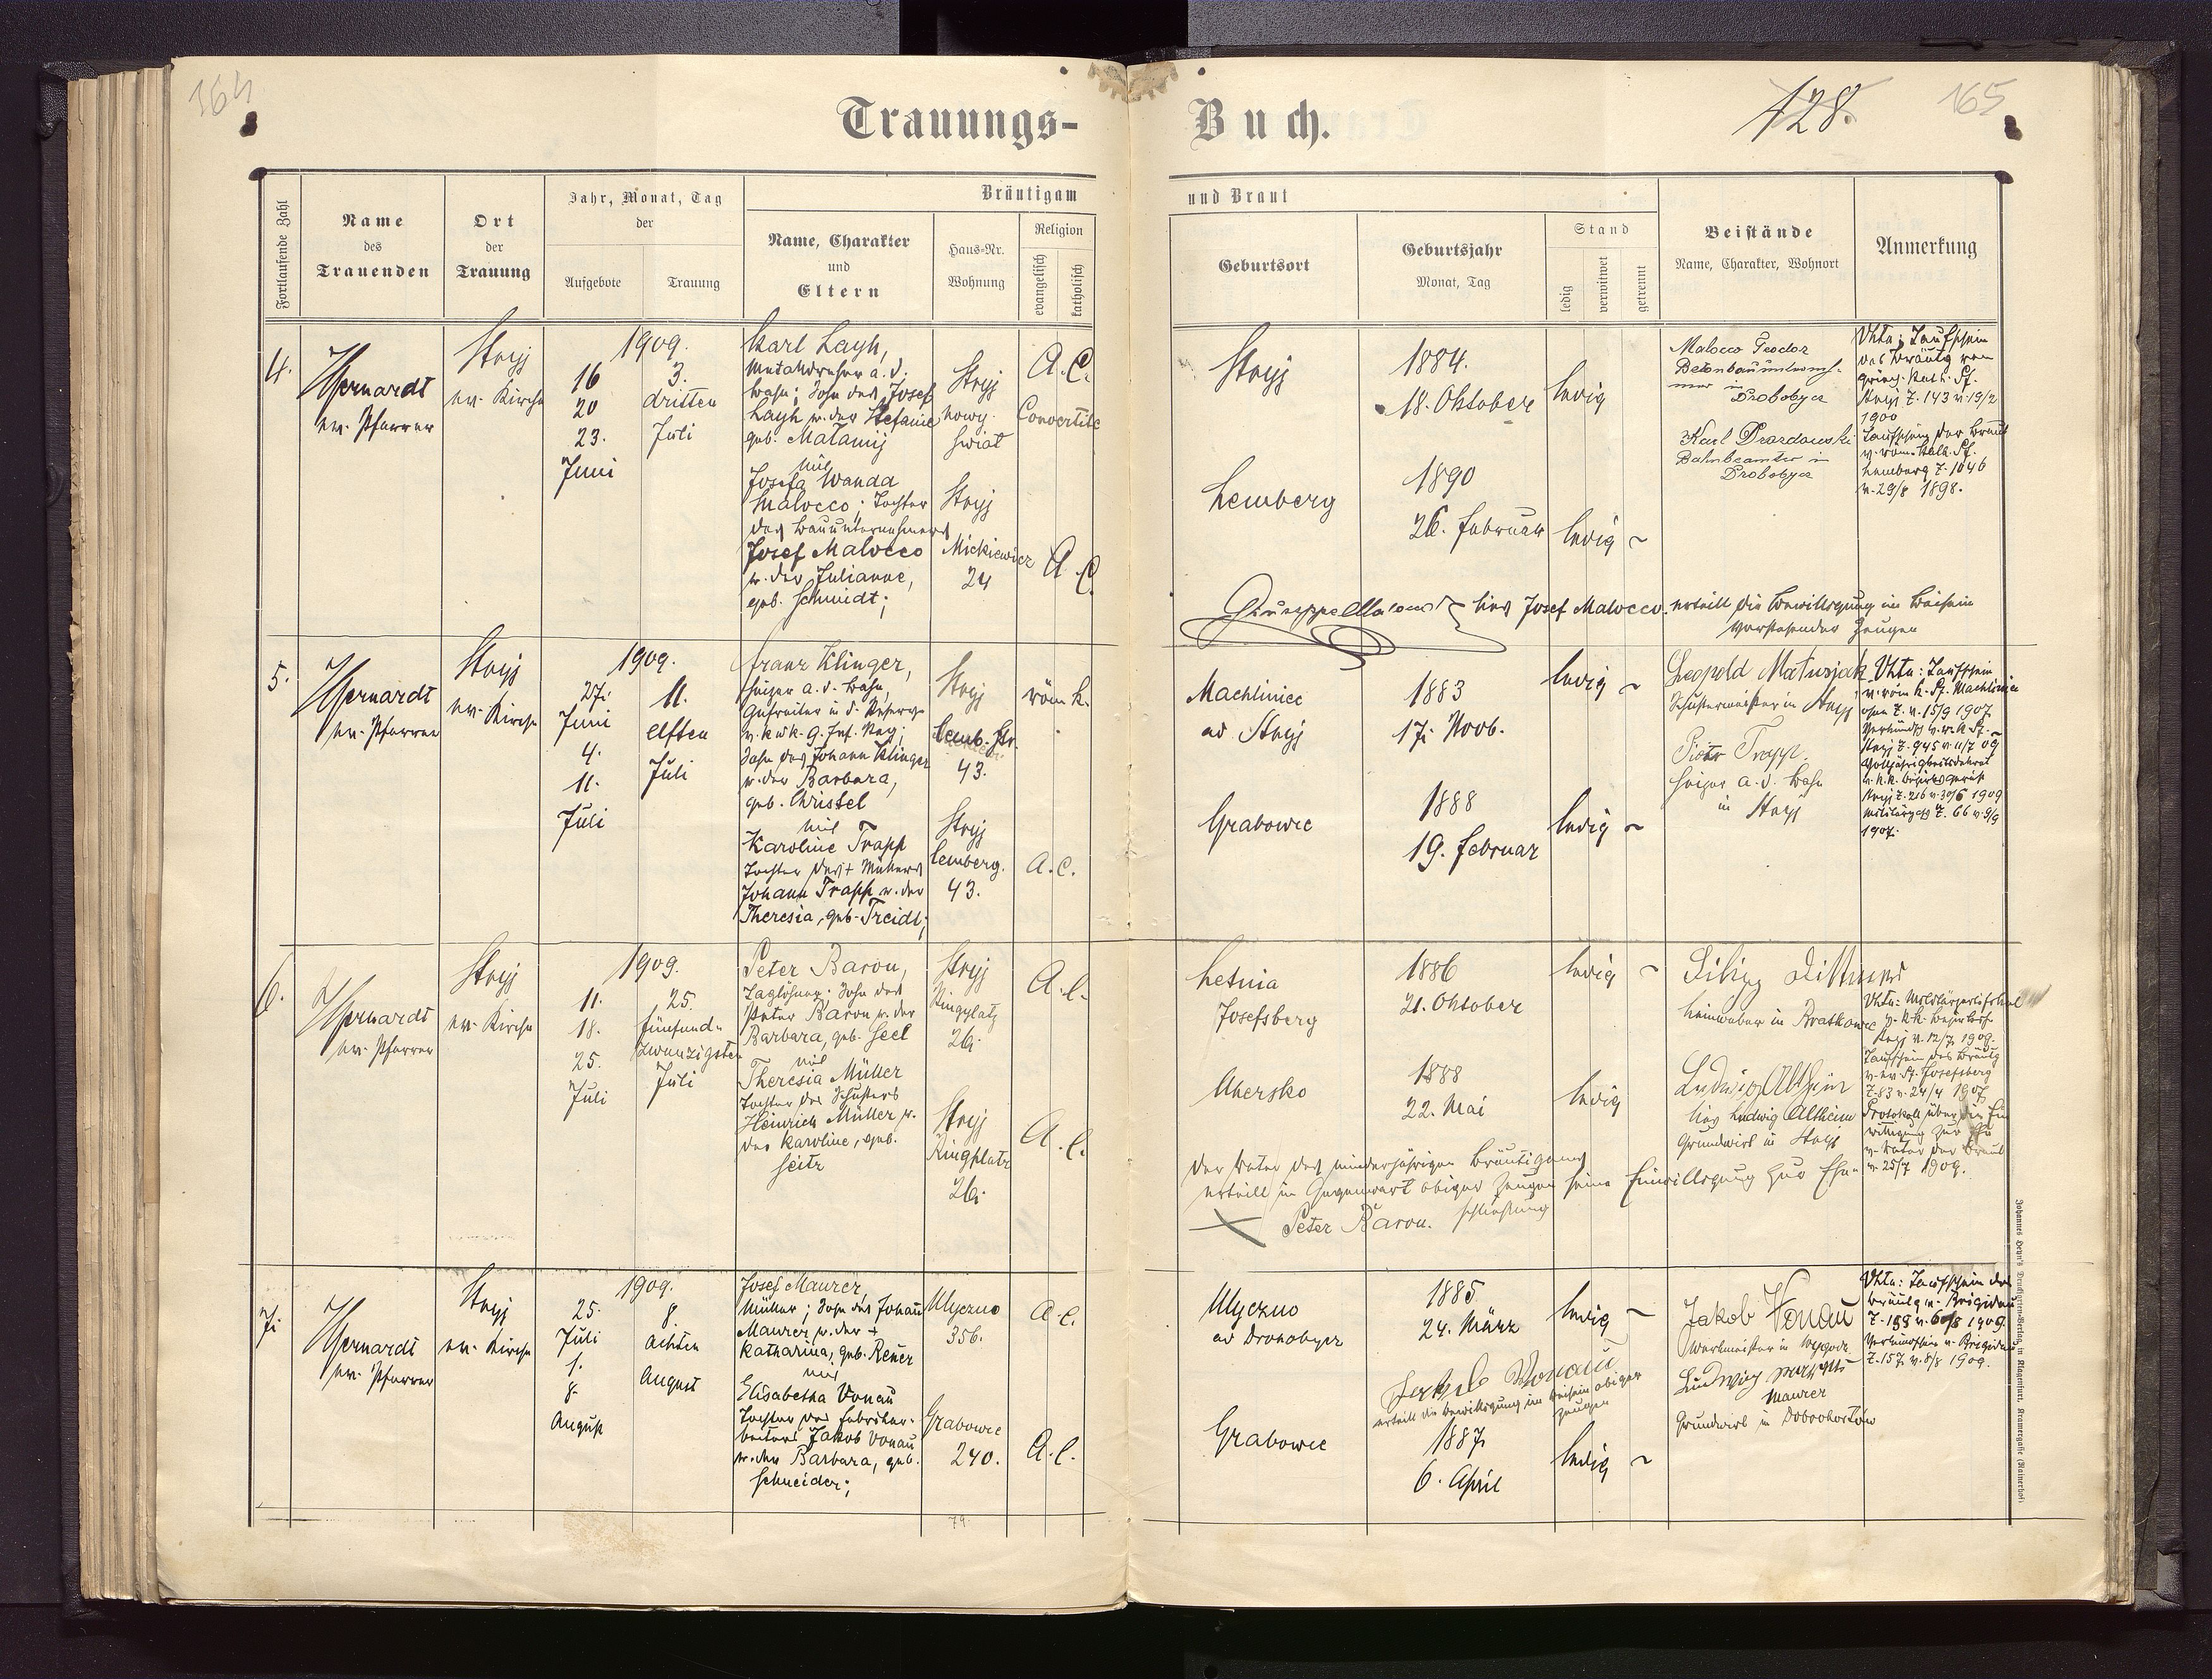 164
Trauungs-
Buch.
128.
165
Fortlaufende Zahl
Name
des
Trauenden
Ort
der
Trauung
Jahr, Monat, Tag
der
Aufgebote
Trauung
Bräutigam
Name, Charakter
und
Eltern
Haus-Nr.
Wohnung
Religion
evangelisch
katholisch
und Braut
Geburtsort
Geburtsjahr
Monat, Tag
Stand
ledig
verwitwet
getrennt
Beistände
Name, Charakter, Wohnort
Anmerkung
4.
ev. Pfarrer
Stryj
ev. Kirche
1909.
16
20
23.
Juni
3.
dritten
Juli
Karl Layh,
Bahn; Sohn des Josef
Layh u. der Stefanie
geb. Matamij
mit
Josefa Wanda
Malocco; Tochter
des Bauunternehmers
Josef Malocco
u. der Julianne,
geb. Schmidt;
Stryj
nowy
świat
Stryj
Mickiewicz
24
A.C.
Convertite
A.C.
Stryj
Lemberg
1884.
18. Oktober
1890
26. Februar
ledig
ledig ~
Malocco Teodor
Betonbauunterneh-
mer in
Drohobycz
Karl Drozdowski
Bahnbeamter in
Drohobycz
Vhta; Taufschein
des Bräutig vom
griech. kath. Pf.
Stryj Z. 143 v. 19/2
1900
Taufschein der Braut
v. röm. kath. Pf.
Lemberg Z. 1046
v. 29/8 1898.
lies Josef Malocco. erteilt die Bewilligung im Beisein
vorstehender Zeugen
5.
ev. Pfarrer
Stryj
ev. Kirche
1909.
27.
Juni
4.
11.
Juli
11.
elften
Juli
Franz Klinger,
Heizer a. d. Bahn,
Gefreiter in d. Reserve
Sohn des Johann Klinger
u. der Barbara,
geb. Christel
mit
Karoline Trapp
Tochter des + Müllers
Johann Trapp u. der
Theresia, geb. Treidl;
Stryj
Lemb. Str.
43.
Stryj
Lemberg.
43.
röm k.
A.C.
Machliniec
ad Stryj
Grabowce
1883
17. Novb.
1888
19. Februar
ledig ~
ledig ~
Leopold Matusjak
Schustermeister in Stryj
Piotr Trapp.
Heizer a. d. Bahn
in Stryj
Vhta: Taufschein
v. röm k. Pf. Machliniec
ohne Z. v. 15/9 1907.
Stryj Z. 945 v. 11/7 09
Volljährigkeitsdekret
v. k. k. Bezirksgericht
Stryj Z. 216 v. 30/6 1909
Z. 66 v. 9/9
1907.
6.
ev. Pfarrer
Stryj
ev. Kirche
1909.
11.
18.
25.
Juli
25.
fünfund-
zwanzigsten
Juli
Peter Baron,
Taglöhner; Sohn des
Peter Baron u. der
Barbara, geb. Seel
mit
Theresia Müller
Tochter des Schusters
Heinrich Müller u.
der Karoline, geb.
Seitz
Stryj
Ringplatz
26.
Stryj
Ringplatz
26.
A.C.
A.C.
Letnia
Josefsberg
Uhersko
1886
21. Oktober
1888
22. Mai
ledig ~
ledig
Leinweber in Bratkowce
lies Ludwig Altheim
Grundwirt in Stryj
Stryj v. 12/7 1909.
Taufschein des Bräutig
v. ev. Pf. Josefsberg
Z. 83 v. 24/4 1907
Protokoll über die Ein
willigung zur Ehe
v. Vater der Braut
v. 25/7 1909.
Der Vater des minderjährigen Bräutigams
erteilt in Gegenwart obiger Zeugen seine Einwilligung zur Ehe-
schließung
Peter Baron.
7.
ev. Pfarrer
Stryj
ev. Kirche
1909.
25.
Juli
1.
8.
August
8.
achten
August
Josef Maurer,
Müller; Sohn des Johann
Maurer u. der +
Katharina, geb. Rener
mit
Elisabetha Vonau
Tochter des Fabriksar-
beiters Jakob Vonau
u. der Barbara, geb.
Schneider;
Ulyczno
356.
Grabowce
240.
A.C.
A.C.
Ulyczno
ad Drohobycz
Grabowce
1885
24. März
Jakob Vonau
erteilt die Bewilligung im Beisein obiger
Zeugen
1887
6. April
ledig ~
ledig ~
Jakob Vonau
Werkmeister in Wygoda
Ludwig
Maurer
Grundwirt in Dobrohostów
Vhta: Taufschein des
Bräutig v. Brigidau
Z. 153 v. 6/8 1909.
Verkündschein v. Brigidau
Z. 157. v. 8/8 1909.
79.